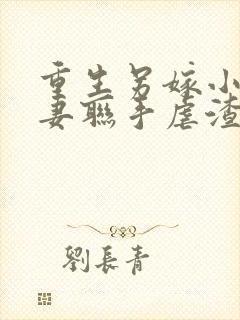 重生另嫁小
妻聯手虐渣
劉長青